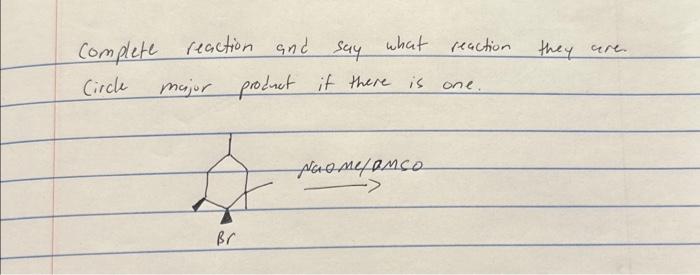 Complete reaction and say what reaction they are.
Circle major product if there is one.
NaOMe/DMSO
Br